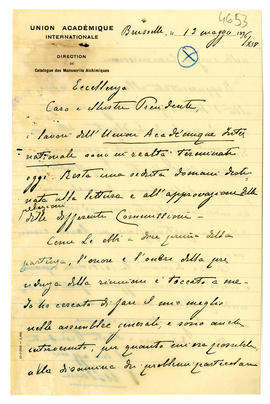 4653
UNION ACADÉMIQUE
INTERNATIONALE
DIRECTION
DU
Catalogue des Manuscrits Alchimiques
Bruxelles, 13 maggio 1936
XIV
Eccellenza
Caro e Illustre Presidente,
i lavori dell'Union Académique Inter
nationale sono in realtà terminati
oggi. Resta una seduta domani desti-
nata alla lettura e all'approvazione delle
relazioni
delle differenti Commissioni –
Come Le ebbi a dire prima della
partenza, l'onore e l'onere della pre
sidenza della riunione è toccato a me.
Io ho cercato di fare il mio meglio
nelle assemblee generali, e sono anche
intervenuto, per quanto mi era possibile,
alla disamina dei problemi particolari